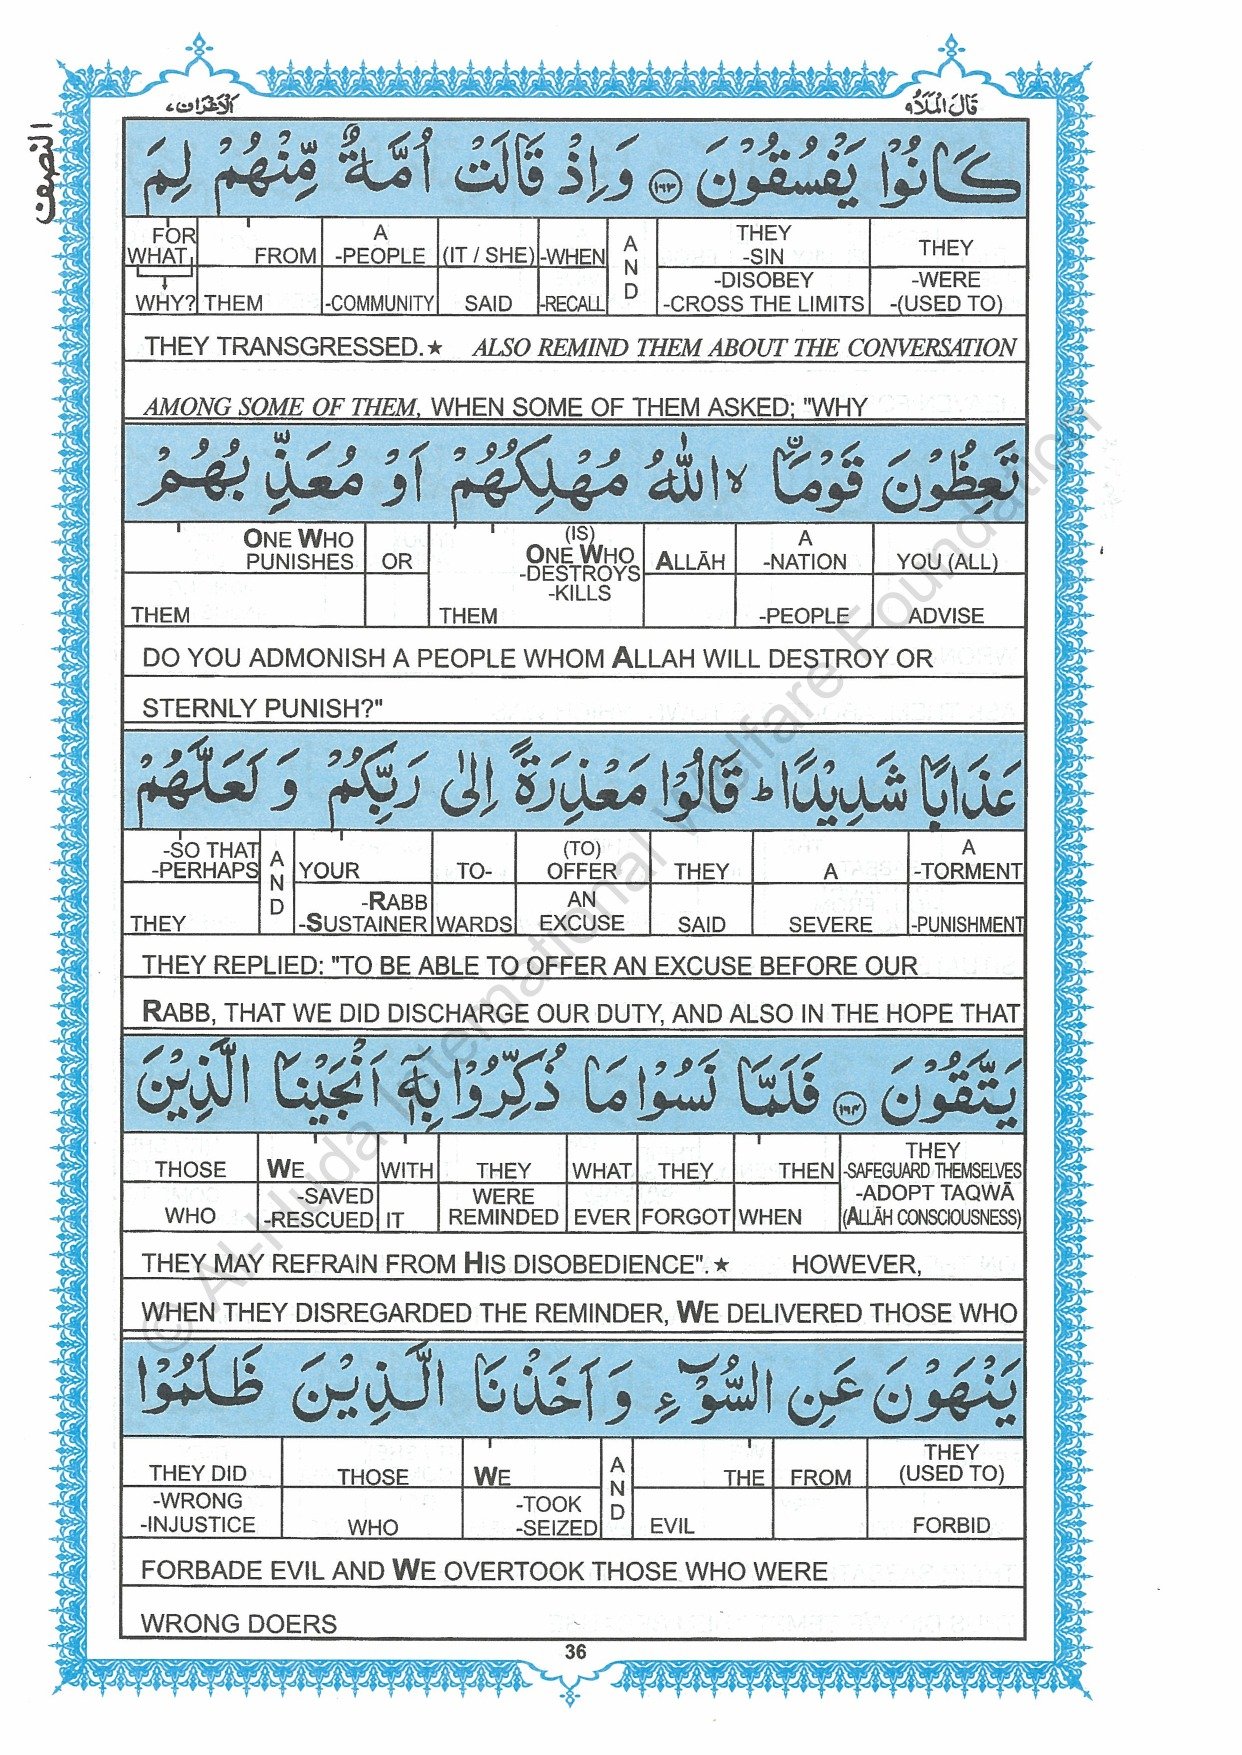 قَالَ الْمَلَاُ ٩
الْاَعْرَاف ٧
النصف
كَانُوْا يَفْسُقُوْنَ ۝١٦٣ وَ اِذْ قَالَتْ اُمَّةٌ مِّنْهُمْ لِمَ
FOR WHAT WHY? | FROM THEM | A -PEOPLE -COMMUNITY | (IT / SHE) SAID | -WHEN -RECALL | AND | THEY -SIN -DISOBEY -CROSS THE LIMITS | THEY -WERE -(USED TO)
THEY TRANSGRESSED.★ ALSO REMIND THEM ABOUT THE CONVERSATION
AMONG SOME OF THEM, WHEN SOME OF THEM ASKED; "WHY
تَعِظُوْنَ قَوْمَا ۙ اللّٰهُ مُهْلِكُهُمْ اَوْ مُعَذِّبُهُمْ
ONE WHO PUNISHES THEM | OR | (IS) ONE WHO -DESTROYS -KILLS THEM | ALLĀH | A -NATION -PEOPLE | YOU (ALL) ADVISE
DO YOU ADMONISH A PEOPLE WHOM ALLAH WILL DESTROY OR
STERNLY PUNISH?"
عَذَابًا شَدِيْدًا ؕ قَالُوْا مَعْذِرَةً اِلٰى رَبِّكُمْ وَ لَعَلَّهُمْ
-SO THAT -PERHAPS THEY | AND | YOUR -RABB -SUSTAINER | TO- WARDS | (TO) OFFER AN EXCUSE | THEY SAID | A SEVERE | A -TORMENT -PUNISHMENT
THEY REPLIED: "TO BE ABLE TO OFFER AN EXCUSE BEFORE OUR
RABB, THAT WE DID DISCHARGE OUR DUTY, AND ALSO IN THE HOPE THAT
يَتَّقُوْنَ ۝١٦٤ فَلَمَّا نَسُوْا مَا ذُكِّرُوْا بِهٖٓ اَنْجَيْنَا الَّذِيْنَ
THOSE WHO | WE -SAVED -RESCUED | WITH IT | THEY WERE REMINDED | WHAT EVER | THEY FORGOT | THEN WHEN | THEY -SAFEGUARD THEMSELVES -ADOPT TAQWĀ (ALLĀH CONSCIOUSNESS)
THEY MAY REFRAIN FROM HIS DISOBEDIENCE".★ HOWEVER,
WHEN THEY DISREGARDED THE REMINDER, WE DELIVERED THOSE WHO
يَنْهَوْنَ عَنِ السُّوْٓءِ وَ اَخَذْنَا الَّذِيْنَ ظَلَمُوْا
THEY DID -WRONG -INJUSTICE | THOSE WHO | WE -TOOK -SEIZED | AND | THE EVIL | FROM | THEY (USED TO) FORBID
FORBADE EVIL AND WE OVERTOOK THOSE WHO WERE
WRONG DOERS
36
© Al-Huda International Welfare Foundation